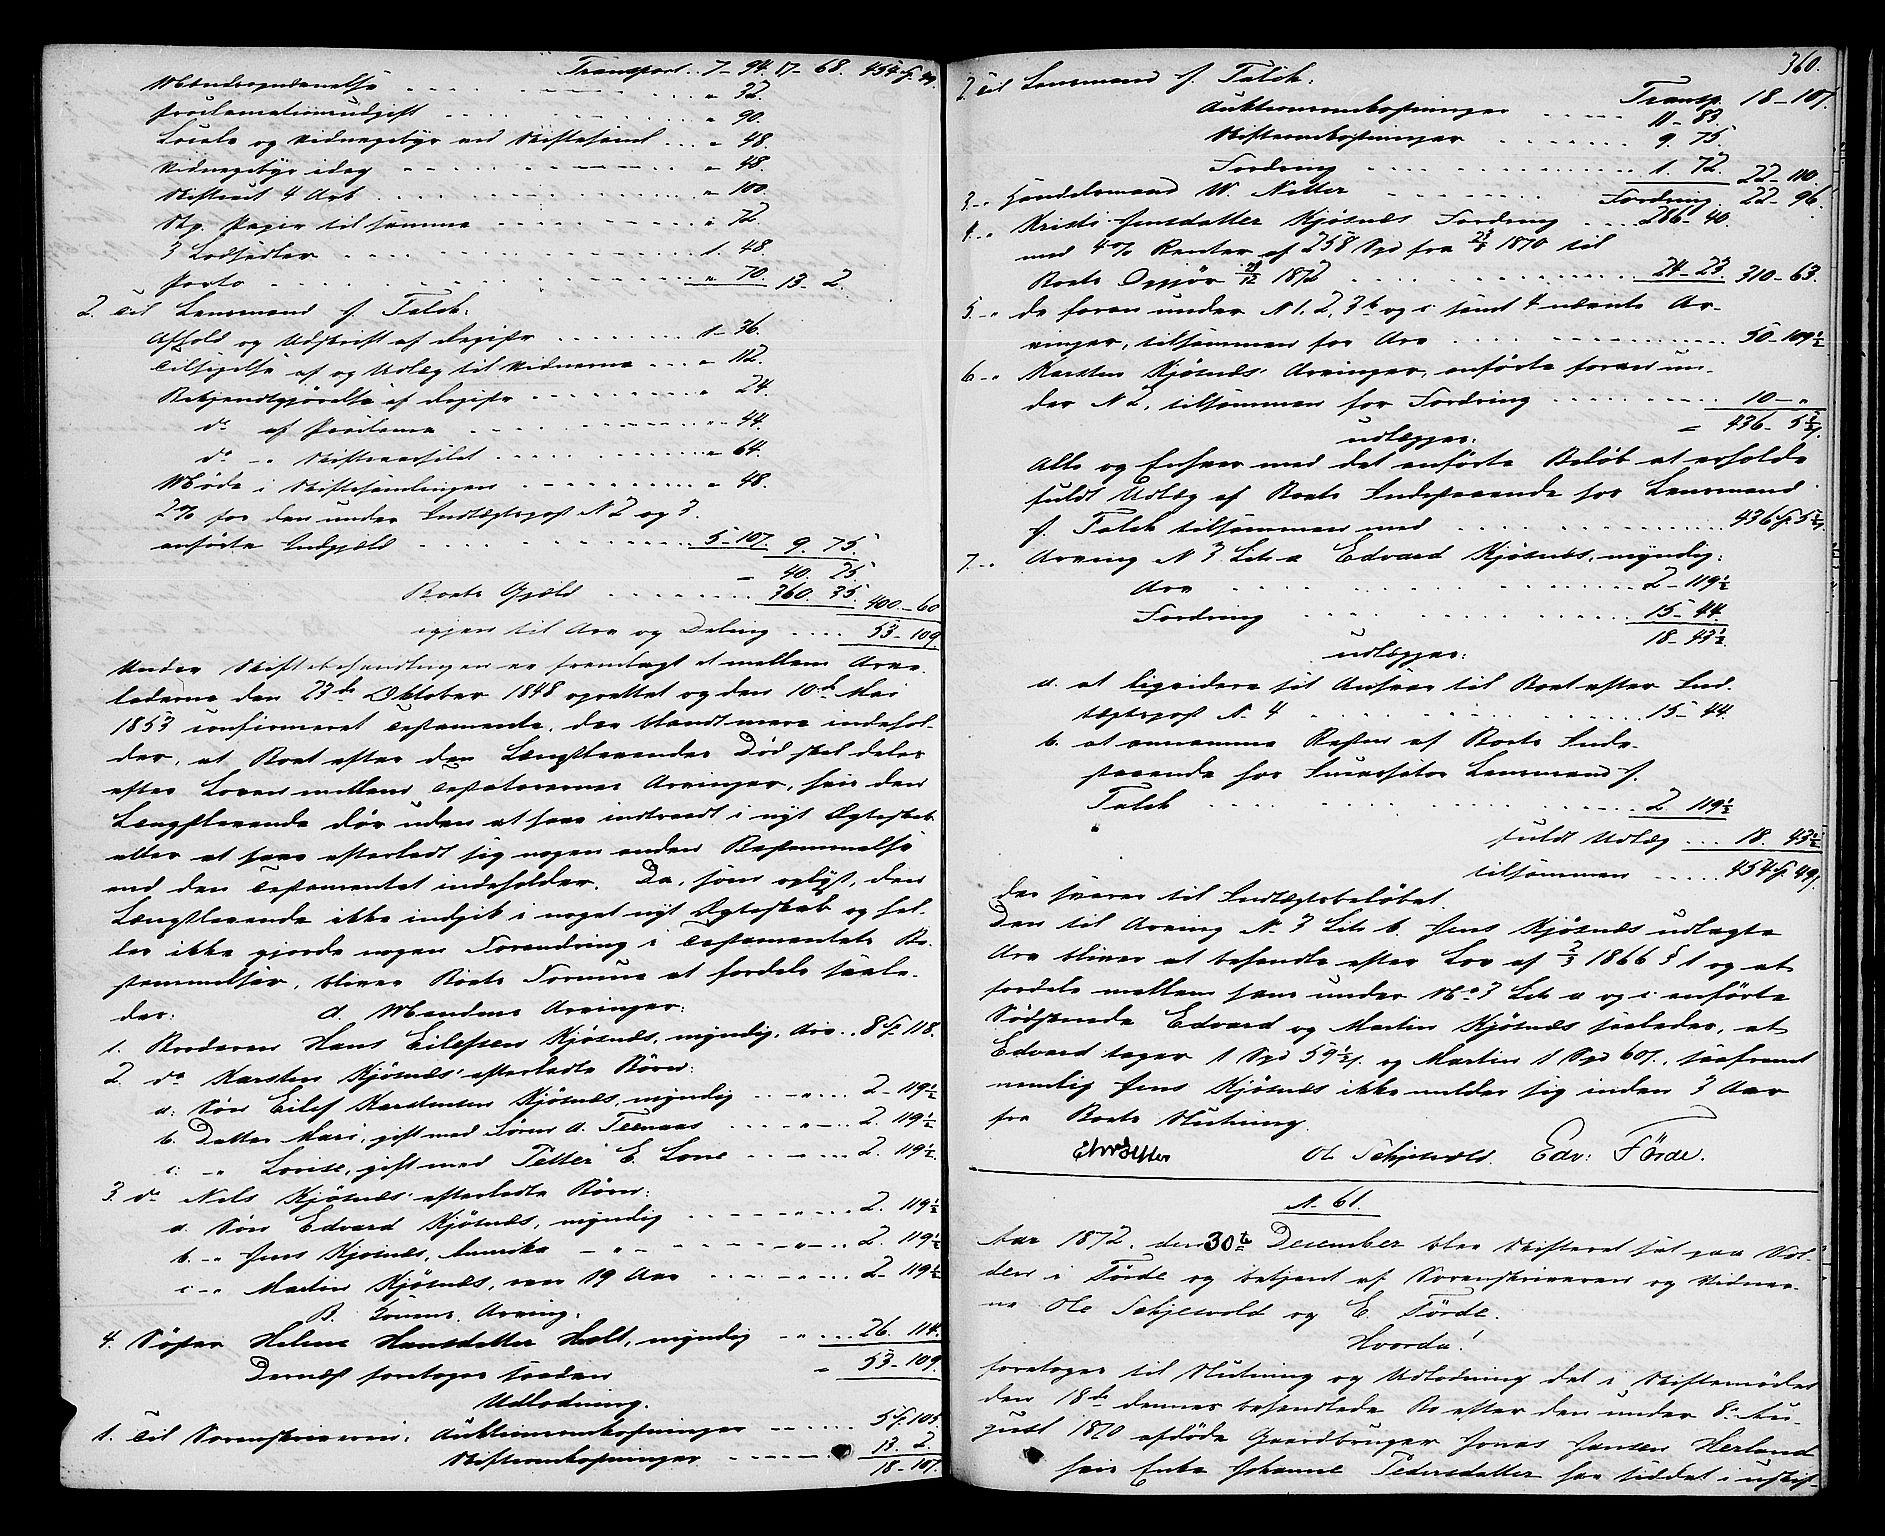 Transport .. 7 - 94. 17 - 68. 454 Sp 49.
Mandsopnævnelse . . . . . „ 32.
Proclamationsudgift . . . . . „ 90.
Locale og Vidnegebyr ved Skiftesaml. . . „ 48.
Vidnegebyr idag . . . . . „ 48.
Skifteret 4 Ark . . . . . „ 100.
Stp. Papir til samme . . . . . „ 72.
3 Lodsedler . . . . . 1. 48.
Porto . . . . . „ 70. 13 - 2.
2. Til Lensmand J. Falch:
Afhold og Udskrift af Registr . . . . . 1 - 36.
Tilsigelse af og Udlæg til Vidnerne . . . „ 112.
Bekjendtgjørelse af Registr . . . . . „ 24.
do af Proclama . . . . . „ 44.
do - „ Skiftevarslet . . . . . „ 64.
Møde i Skiftesamlingen . . . . . „ 48.
2 % for den under Indtægtspost N 2 og 3
anførte Indgjæld . . . . . 5 - 107. 9. 75.
= 40. 25
Boets Gjæld . . . . . 360. 35. 400 - 60
igjen til Arv og Deling . . . . 53 - 109.
Under Skiftebehandlingen er fremlagt et mellem Arve-
laderne den 23de Oktober 1848 oprettet og den 10de Mai
1853 confirmeret Testamente, der blandt mere indehol-
der, at Boet efter den Længstlevendes Død skal deles
efter Loven mellem Testatorernes Arvinger, hvis den
Længstlevende dør uden at have indtraadt i nyt Ægteskab
eller at have efterladt sig nogen anden Bestemmelse
end den Testamentet indeholder. Da, som oplyst, den
Længstlevende ikke indgik i noget nyt Ægteskab og hel-
ler ikke gjorde nogen Forandring i Testamentets Be-
stemmelser, bliver Boets Formue at fordele saale-
des: A. Mandens Arvinger:
1. Broderen Hans Eilefsen Kjøsnes, myndig, Arv . . 8 Sp 118.
2. do Karsten Kjøsnes' efterladte Børn:
a. Søn Eilef Karstensen Kjøsnes, myndig . . „ . . . 2 - 119½
b. Datter Mari, gift med Søren A. Teenaas . . „ . . 2. 119½
c. „ Lovise, gift med Petter E. Lone . . „ . . 2. 119½.
3. do Nels Kjøsnes' efterladte Børn:
a. Søn Edvard Kjøsnes, myndig . . . . „ . . 2. 119½
b. - „ Jens Kjøsnes, Amerika - „ - . . . „ . . 2. 119½
c - „ Martin Kjøsnes, over 19 Aar . . . „ . . 2 - 119½
B. Konens Arving:
4. Søster Helene Hansdatter Holt, myndig . . „ . . . 26. 114.
Dernæst foretoges saadan = 53 - 109.
Udlodning.
1. Til Sorenskriveren: Auktionsomkostninger . . . . 5 Sp 105
Skifteomkostninger . . . . 13. 2
18 - 107.
360.
2. Til Lensmand J. Falch: Transp. 18 - 107.
Auktionsomkostninger . . . . . 11 - 83.
Skifteomkostninger . . . . . 9. 75.
Fordring . . . . . 1. 72. 22 - 110
3. „ Handelsmand W. Nitter . . . . . Fordring. 22 - 96.
4. „ Kristi Jensdatter Kjøsnes Fordring . . . 286 - 40.
med 4 % Renter af 258 Spd fra 23/8 1870 til
Boets Opgjør 21/12 1872 . . . . . 24 - 23. 310 - 63.
5. - „ de foran under N 1. 2. 3 b og c samt 4 nævnte Ar-
vinger, tilsammen for Arv . . . . . 50 - 109½
6 - „ Karsten Kjøsnes' Arvinger, anførte foran un-
der N 2, tilsammen for Fordring . . . . . 10 - „
= 436 - 5½
udlægges:
Alle og Enhver med det anførte Beløb at erholde
fuldt Udlæg af Boets Indestaaende hos Lensmand
J. Falch tilsammen med . . . . . 436 Sp 5½
7. - „ Arving N 3 Lit a Edvard Kjøsnes, myndig:
Arv . . . . . 2 - 119½
Fordring . . . . . 15 - 44.
18 - 43½
udlægges:
a. at liqvidere sit Ansvar til Boet efter Ind-
tægtspost N 4 . . . . . 15 - 44.
b. at annamme Resten af Boets Inde-
staaende hos Incassator Lensmand J.
Falch . . . . . 2. 119½
fuldt Udlæg . . . 18. 43½
tilsammen . . . . . 454 Sp 49.
der svarer til Indtægtsbeløbet.
Den til Arving N. 3 Lit. b. Jens Kjøsnes udlagte
Arv bliver at behandle efter Lov af 2/3 1866 § 1 og at
fordele mellem hans under No 3 Lit a og c anførte
Sødskende Edvard og Martin Kjøsnes saaledes, at
Edvard tager 1 Spd 59½ s. og Martin 1 Spd 60 s., saafremt
nemlig Jens Kjøsnes ikke melder sig inden 3 Aar
fra Boets Slutning.
Ole Schjetvold. Edv: Förde.
N. 61.
Aar 1872, den 30te December blev Skifteret sat paa Vol-
den i Förde og betjent af Sorenskriveren og Vidner-
ne Ole Schjetvold og E. Förde.
Hvorda!
foretoges til Slutning og Udlodning det i Skiftemødet
den 18de dennes behandlede Bo efter den under 8. Au-
gust 1870 afdøde Gaardbruger Jonas Jensen Herland
hvis Enke Johanne Pedersdatter har siddet i uskif-